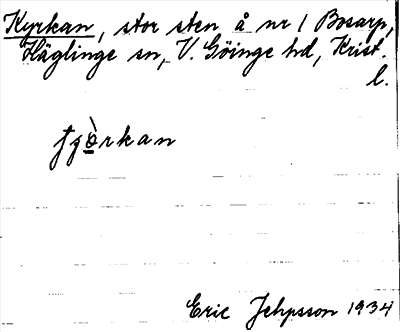 Kyrkan, stor sten å nr 1 Bosarp,
Häglinge sn, V. Göinge hd, Krist.
l.
Eric Jehpsson 1934